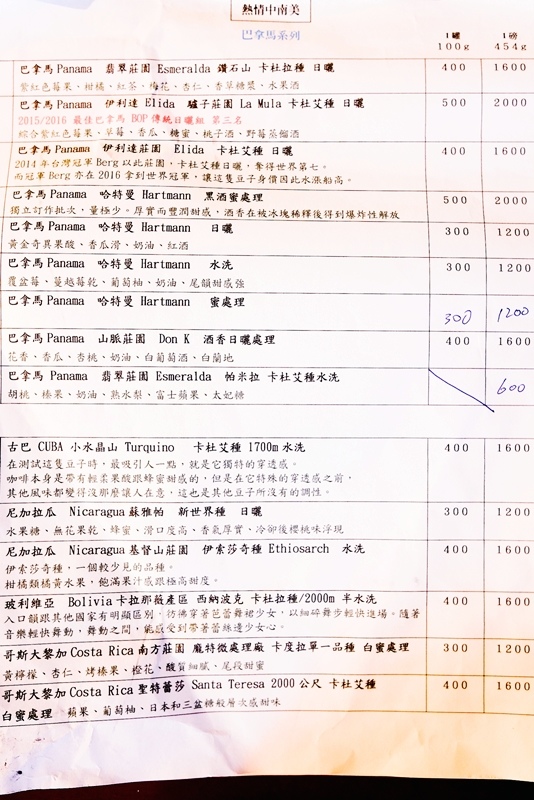 熱情中南美
巴拿馬系列
1罐 1磅
100g 454g
巴拿馬Panama 翡翠莊園 Esmeralda 鑽石山 卡杜拉種 日曬 400 1600
紫紅色莓果、柑橘、紅茶、梅花、杏仁、香草糖漿、水果酒
巴拿馬Panama 伊利達 Elida 驢子莊園 La Mula 卡杜艾種 日曬 500 2000
2015/2016 最佳巴拿馬 BOP 傳統日曬組 第三名
綜合紫紅色莓果、草莓、香瓜、糖蜜、桃子酒、野莓蒸餾酒
巴拿馬Panama 伊利達莊園 Elida 卡杜艾種 日曬 400 1600
2014 年台灣冠軍 Berg 以此莊園，卡杜艾種日曬，奪得世界第七。
而冠軍 Berg 亦在 2016 拿到世界冠軍，讓這隻豆子身價因此水漲船高。
巴拿馬Panama 哈特曼 Hartmann 黑酒蜜處理 500 2000
獨立訂作批次，量極少。厚實而豐潤甜感，酒香在被冰塊稀釋後得到爆炸性解放
巴拿馬Panama 哈特曼 Hartmann 日曬 300 1200
黃金奇異果酸、香瓜滑、奶油、紅酒
巴拿馬Panama 哈特曼 Hartmann 水洗 300 1200
覆盆莓、蔓越莓乾、葡萄柚、奶油、尾韻甜感強
巴拿馬Panama 哈特曼 Hartmann 蜜處理 300 1200
巴拿馬Panama 山脈莊園 Don K 酒香日曬處理 400 1600
花香、香瓜、杏桃、奶油、白葡萄酒、白蘭地
巴拿馬Panama 翡翠莊園 Esmeralda 帕米拉 卡杜艾種水洗 600
胡桃、榛果、奶油、熟水梨、富士蘋果、太妃糖
古巴 CUBA 小水晶山 Turquino 卡杜艾種 1700m 水洗 400 1600
在測試這隻豆子時，最吸引人一點，就是它獨特的穿透感。
咖啡本身是帶有輕柔果酸跟蜂蜜甜感的，但是在它特殊的穿透感之前，
其他風味都變得沒那麼讓人在意，這也是其他豆子所沒有的調性。
尼加拉瓜 Nicaragua 蘇雅帕 新世界種 日曬 300 1200
水果糖、無花果乾、蜂蜜、滑口度高、香氣厚實、冷卻後櫻桃味浮現
尼加拉瓜 Nicaragua 基督山莊園 伊索莎奇種 Ethiosarch 水洗 400 1600
伊索莎奇種，一個較少見的品種。
柑橘類橘黃水果，飽滿果汁感跟極高甜度。
玻利維亞 Bolivia 卡拉那薇產區 西納波克 卡杜拉種/2000m 半水洗 400 1600
入口韻跟其他國家有明顯區別，彷彿穿著芭蕾舞裙少女，以細碎舞步輕快進場。隨著
音樂輕快舞動，舞動之間，能感受到帶著蕾絲邊少女心。
哥斯大黎加 Costa Rica 南方莊園 龐特微處理廠 卡度拉單一品種 白蜜處理 300 1200
黃檸檬、杏仁、烤榛果、橙花、酸質細膩、尾段甜蜜
哥斯大黎加 Costa Rica 聖特蕾莎 Santa Teresa 2000 公尺 卡杜艾種 400 1600
白蜜處理 蘋果、葡萄柚、日本和三盆糖般層次感甜味